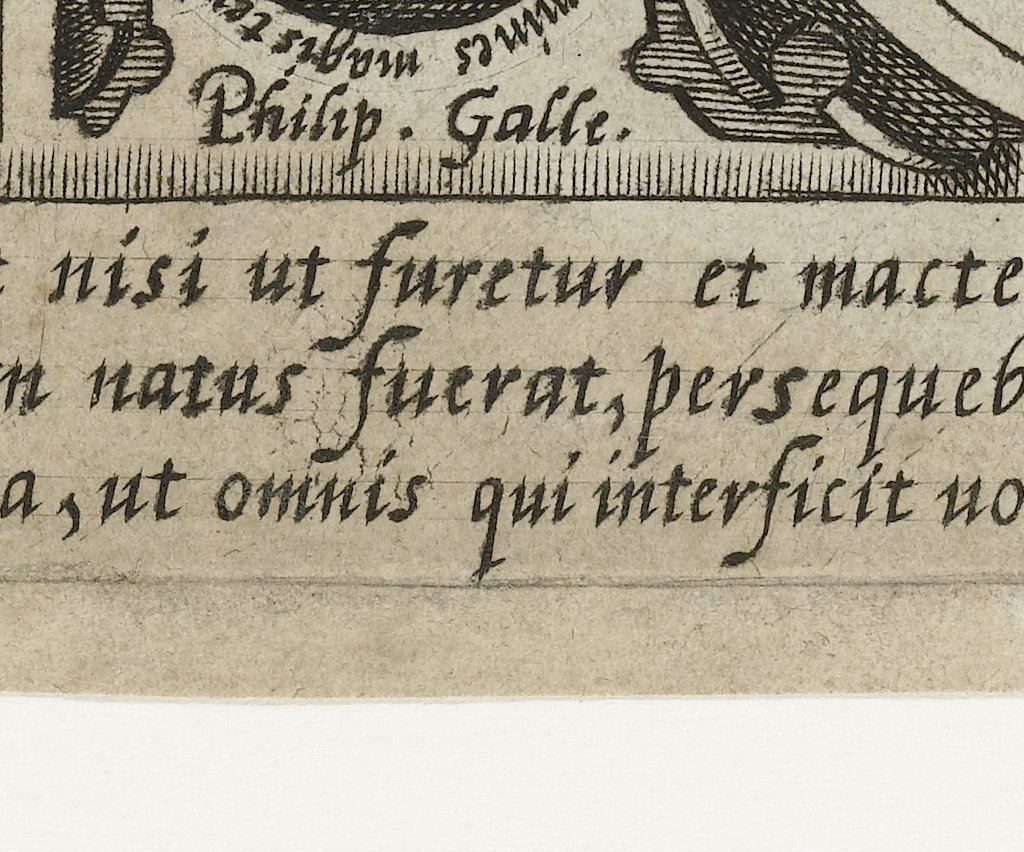 magis
Philip. Galle.
nisi ut furetur et macte
natus fuerat, persequeb
a, ut omnis qui interficit uo